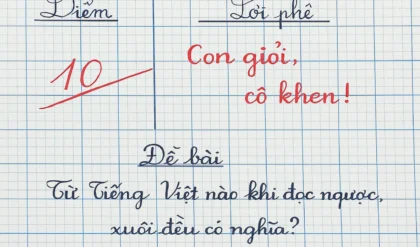 Điểm
Lời phê
10
Con giỏi,
cô khen!
Đề bài
Từ Tiếng Việt nào khi đọc ngược,
xuôi đều có nghĩa?